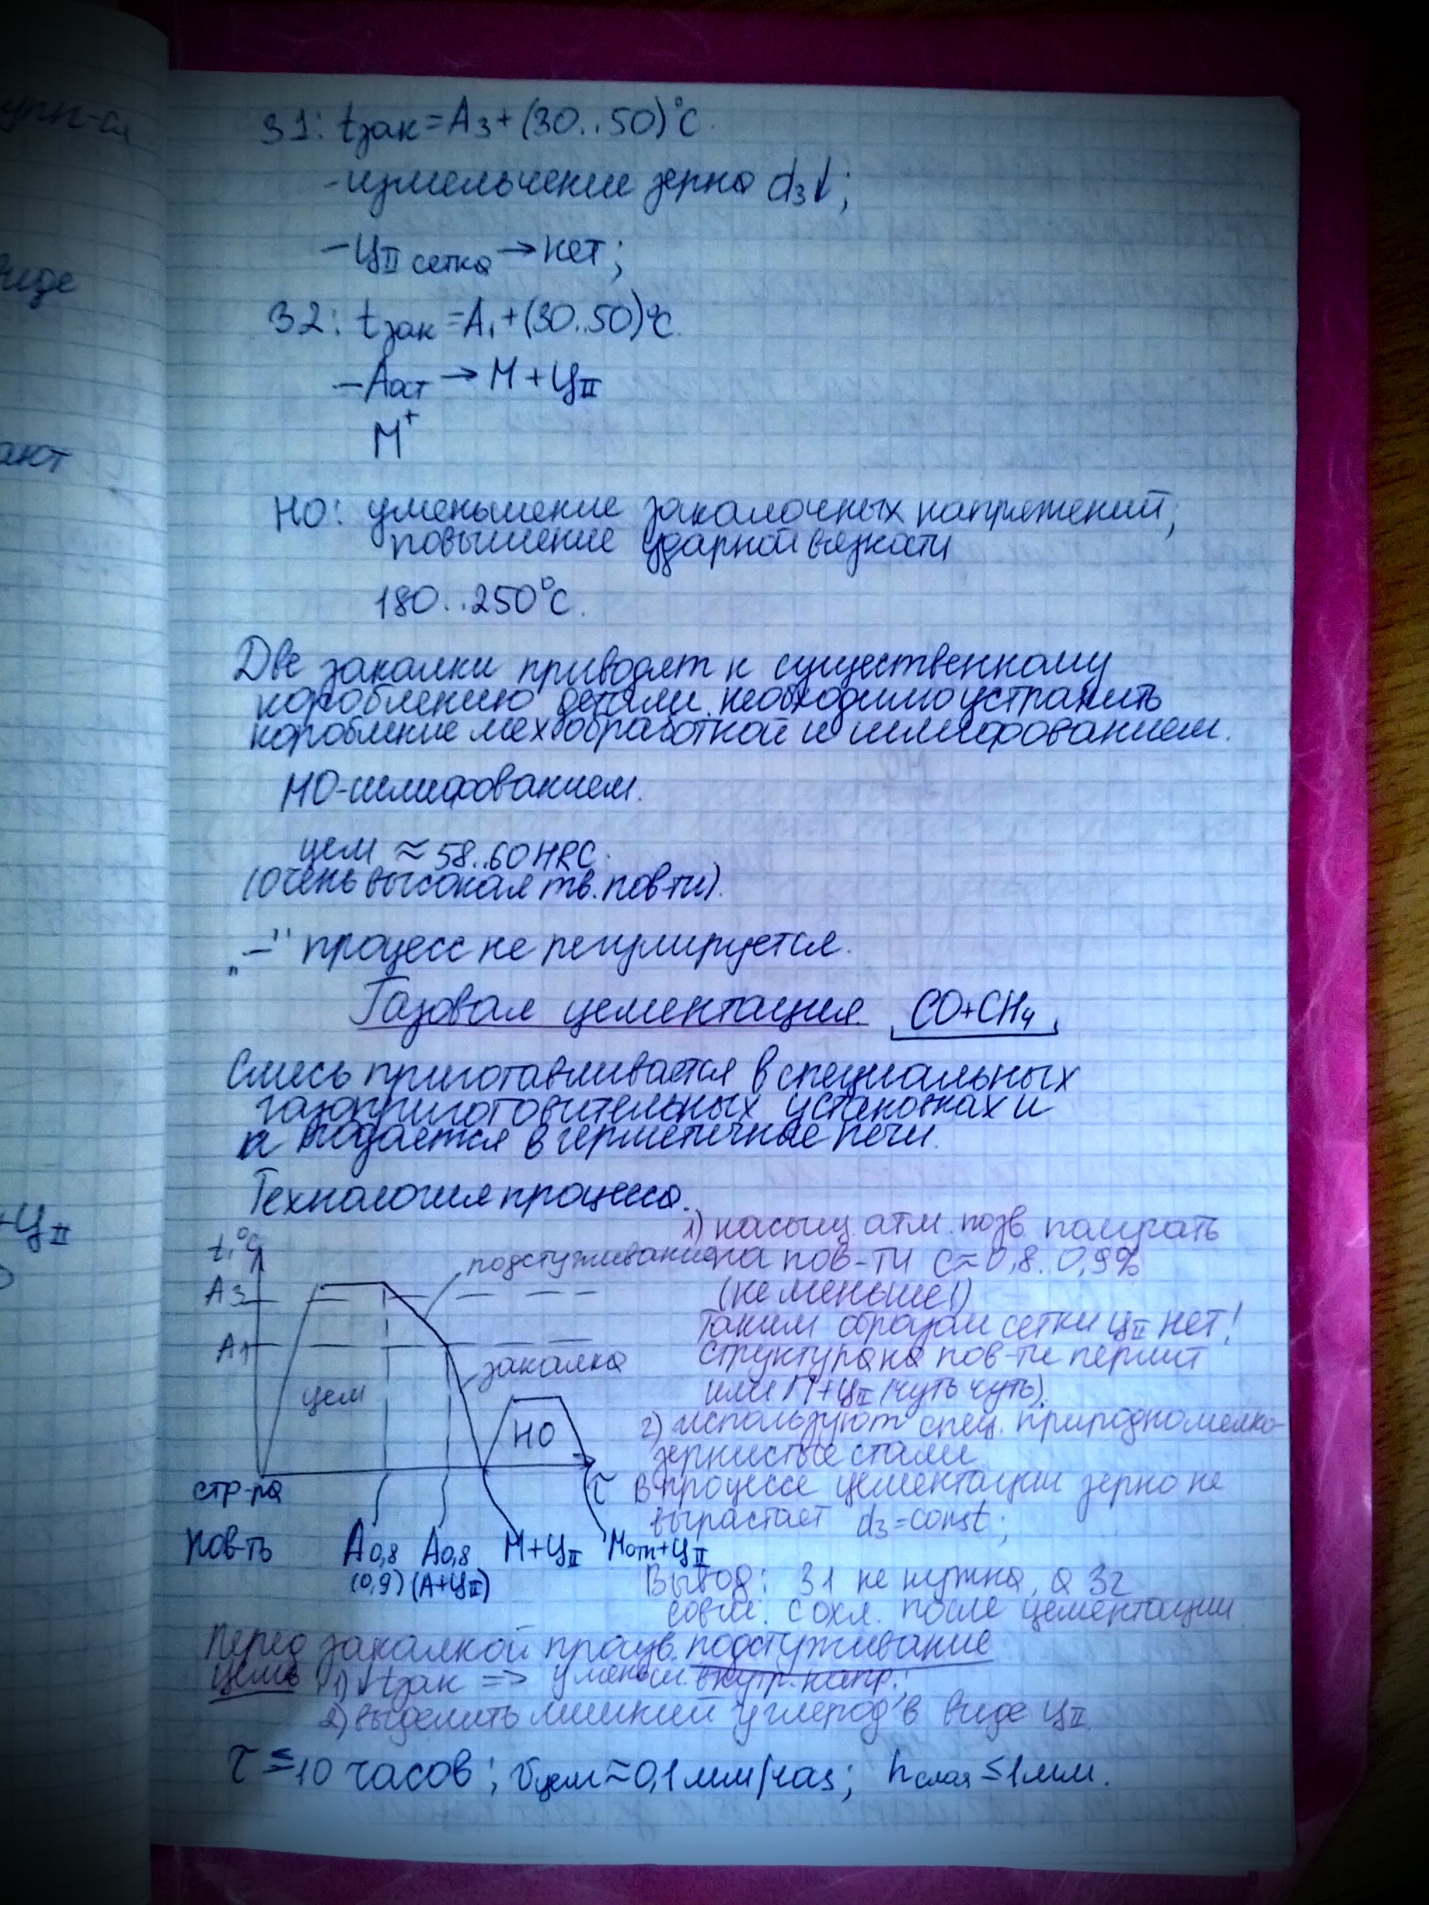 упп-ся
виде
ают
+ЦII
З1: tзак=А3+(30..50)°С.
-измельчение зерна dз↓;
-ЦII сетка → нет;
З2: tзак=А1+(30..50)°С.
-Аост → М+ЦII
М+
НО: уменьшение закалочных напряжений,
повышение ударной вязкости
180..250°С.
Две закалки приводят к существенному
короблению детали, необходимо устранить
коробление мехобработкой и шлифованием.
НО-шлифованием.
цем ≈ 58..60HRC.
(очень высокая тв. пов-ти).
„—" процесс не регулируется.
Газовая цементация CO+CH4
Смесь приготавливается в специальных
газоприготовительных установках и
подается в герметичные печи.
Технология процесса.
1) насыщ. атм. позв. получать
на пов-ти С≈0,8..0,9%
(не меньше!)
Таким образом сетки ЦII нет!
Структура на пов-ти перлит
или П+ЦII (чуть чуть).
2) используют спец. природномелко-
зернистые стали
В процессе цементации зерно не
вырастает dз=const;
Вывод: З1 не нужна, а З2
совм. с охл. после цементации
t,°C
А3
А1
подстуживание
закалка
цем
НО
τ
стр-ра
пов-ть
А0,8 А0,8 М+ЦII Мотп+ЦII
(0,9) (А+ЦII)
Перед закалкой произв. подстуживание
Цель 1) ↓tзак => уменьш. внутр. напр.;
2) выделить лишний углерод в виде ЦII.
τ ≤ 10 часов; vцем≈0,1мм/час; hслоя≤1мм.